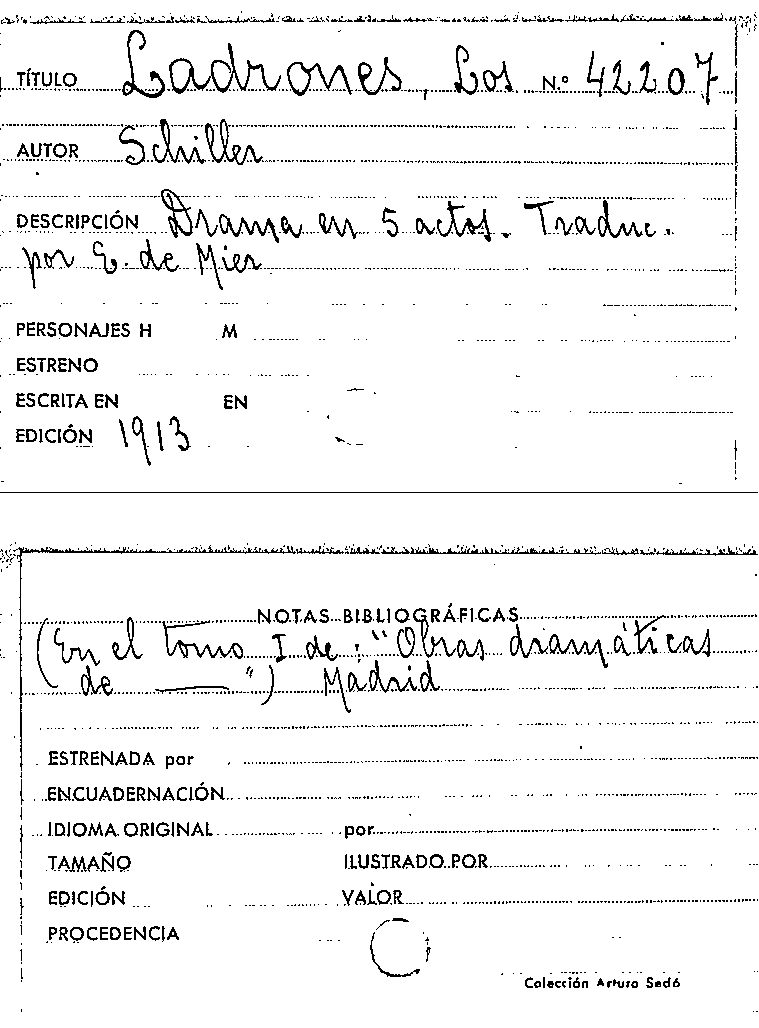 TÍTULO Ladrones, Los N.º 42207
AUTOR Schiller
DESCRIPCIÓN Drama en 5 actos. Traduc.
por E. de Mier
PERSONAJES H M
ESTRENO
ESCRITA EN EN
EDICIÓN 1913
NOTAS BIBLIOGRÁFICAS
(En el tomo I de: "Obras dramáticas
de ——— ") Madrid
ESTRENADA por
ENCUADERNACIÓN
IDIOMA ORIGINAL por
TAMAÑO ILUSTRADO POR
EDICIÓN VALOR
PROCEDENCIA
Colección Arturo Sedó